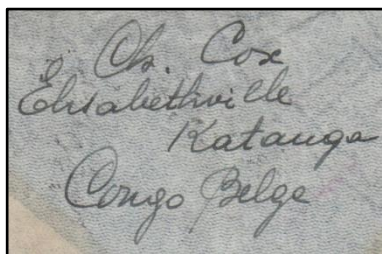 Ch. Cox
Elisabethville
Katanga
Congo Belge